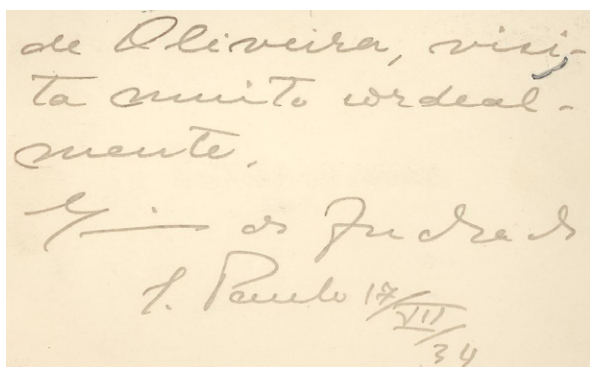 de Oliveira, visi-
ta muito cordeal-
mente.
Mario de Andrade
S. Paulo 17/VII/34